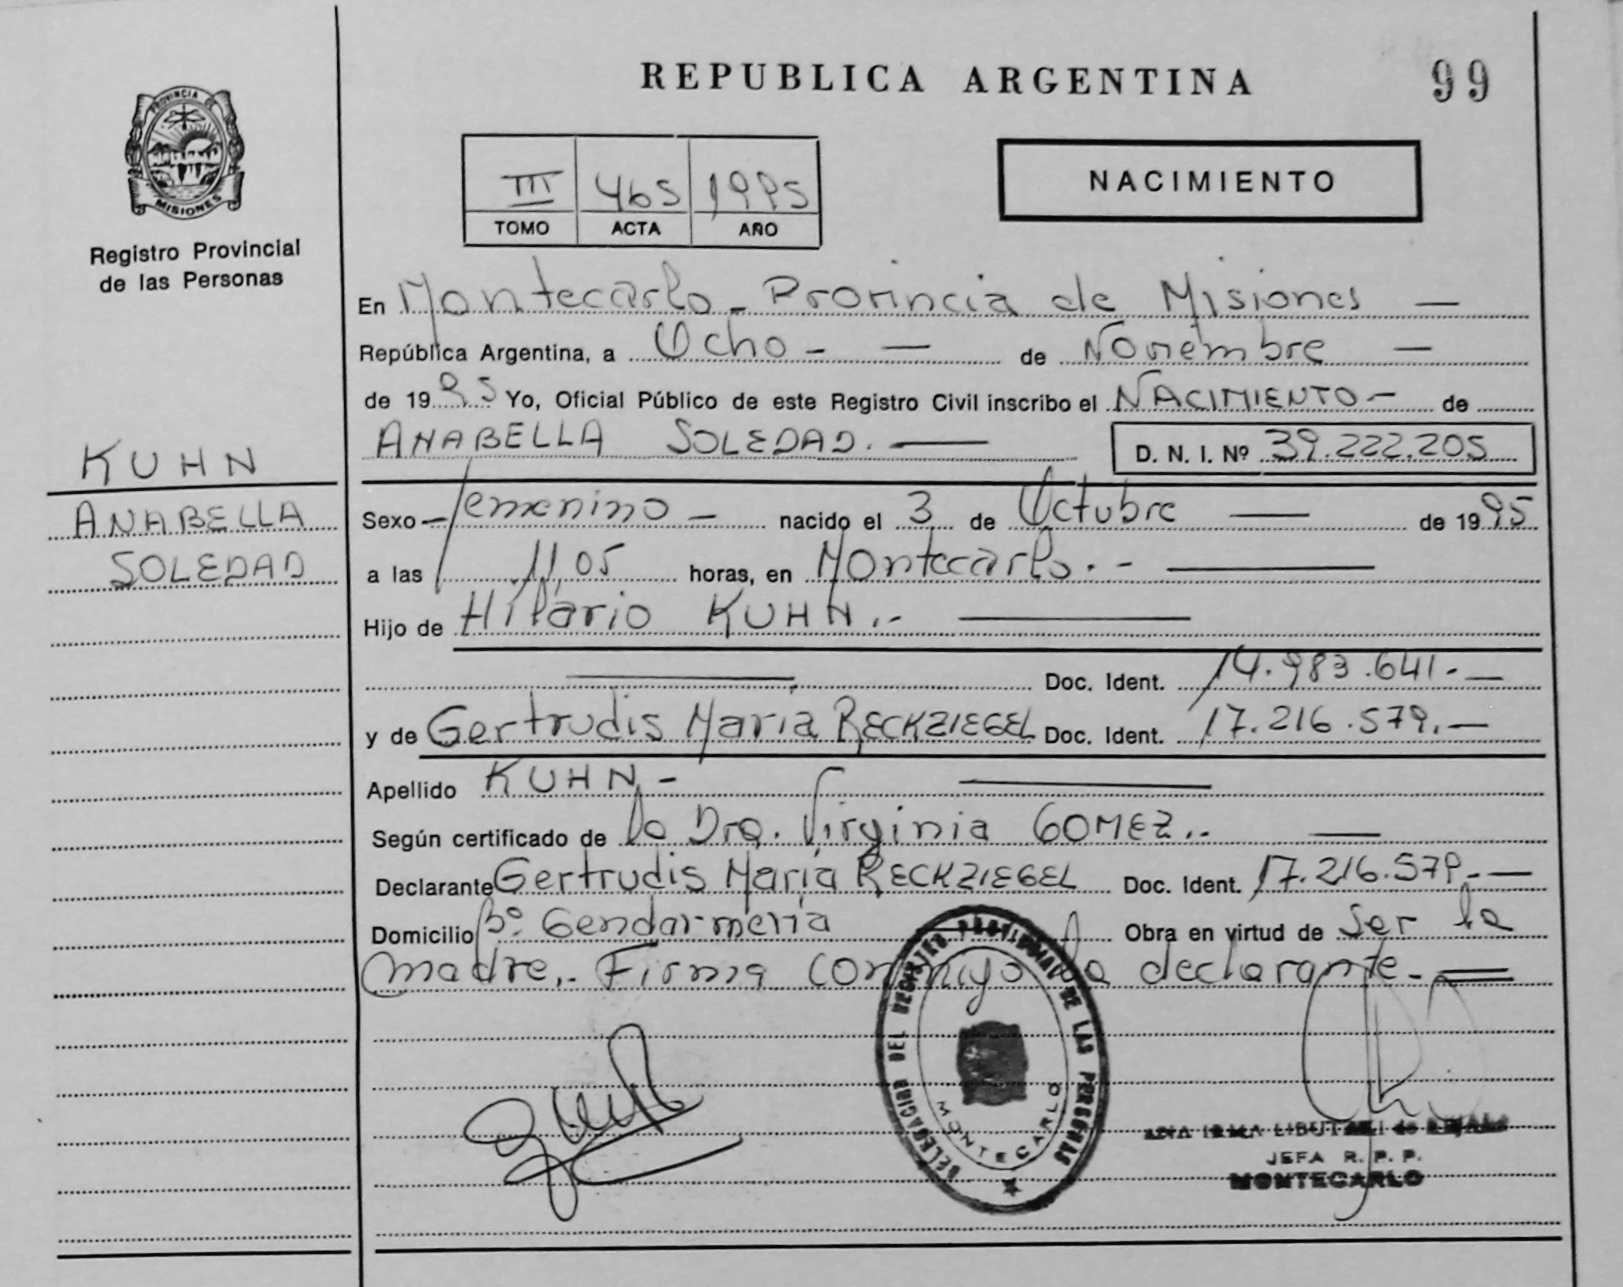 REPUBLICA ARGENTINA
99
PROVINCIA DE
MISIONES
Registro Provincial
de las Personas
III 465 1995
TOMO ACTA AÑO
NACIMIENTO
En Montecarlo - Provincia de Misiones —
República Argentina, a Ocho - — de Noviembre —
de 1995 Yo, Oficial Público de este Registro Civil inscribo el NACIMIENTO - de
ANABELLA SOLEDAD. — D. N. I. Nº 39.222.205
KUHN
ANABELLA
SOLEDAD
Sexo — femenino — nacido el 3 de Octubre — de 1995
a las 11,05 horas, en Montecarlo. - —
Hijo de Hilario KUHN.- —
— Doc. Ident. 14.983.641.- —
y de Gertrudis María RECKZIEGEL Doc. Ident. 17.216.579.—
Apellido KUHN - —
Según certificado de la Dra. Virginia GOMEZ.. —
Declarante Gertrudis María RECKZIEGEL Doc. Ident. 17.216.579.- —
Domicilio Bº Gendarmería Obra en virtud de Ser la
madre.. Firma conmigo la declarante. —
DELEGACION DEL REGISTRO PROVINCIAL DE LAS PERSONAS
MONTECARLO
IRMA
JEFA R. P. P.
MONTECARLO